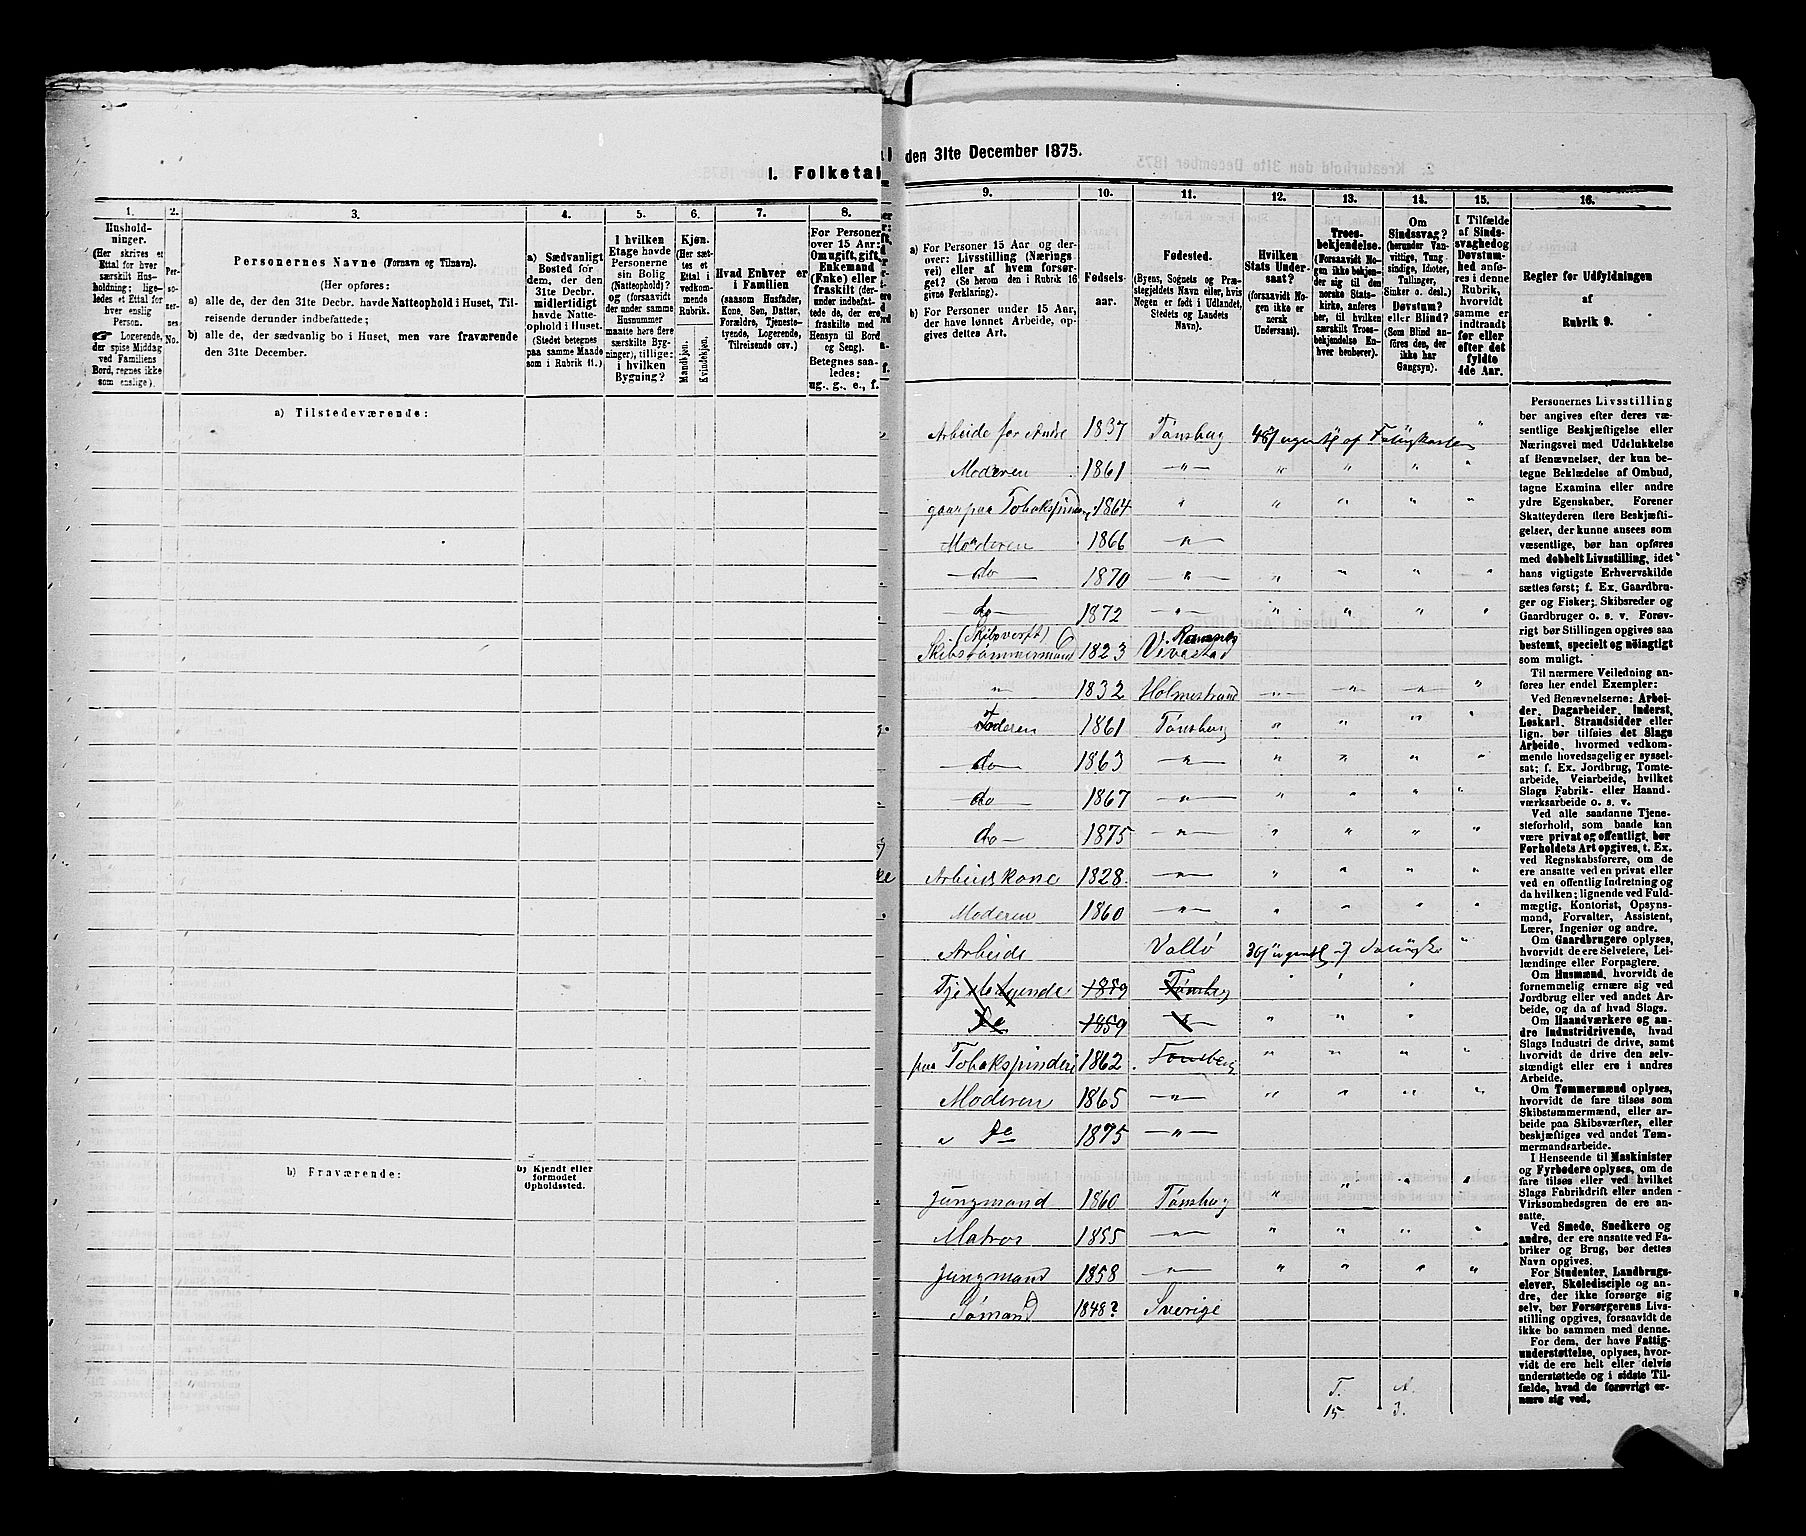 I. Folketal
den 31te December 1875.
1. 2. 3. 4. 5. 6. 7. 8.
Hushold-
ninger.
(Her skrives et
Ettal for hver
særskilt Hus-
holdning; lige-
ledes et Ettal for
hver enslig
Person.
☛ Logerende,
der spise Middag
ved Familiens
Bord, regnes ikke
som enslige).
Per-
so-
ner-
nes
No.
Personernes Navne (Fornavn og Tilnavn).
(Her opføres:
a) alle de, der den 31te Decbr. havde Natteophold i Huset, Til-
reisende derunder indbefattede;
b) alle de, der sædvanlig bo i Huset, men vare fraværende
den 31te December.
a) Sædvanligt
Bosted for
dem, der den
31te Decbr.
midlertidigt
havde Natte-
ophold i Huset.
(Stedet betegnes
paa samme Maade
som i Rubrik 11.)
I hvilken
Etage havde
Personerne
sin Bolig
(Natteophold)?
og (forsaavidt
der under samme
Husnummer
maatte høre flere
særskilte Byg-
ninger), tillige:
i hvilken
Bygning?
Kjøn.
(Her sæt-
tes et
Ettal i
vedkom-
mende
Rubrik.
Mandkjøn.
Kvindekjøn.
Hvad Enhver er
i Familien
(saasom Husfader,
Kone, Søn, Datter,
Forældre, Tjeneste-
tyende, Logerende,
Tilreisende osv.)
For Personer
over 15 Aar:
Om ugift, gift,
Enkemand
(Enke) eller
fraskilt (der-
under indbefat-
tede de, der ere
fraskilte med
Hensyn til Bord
og Seng).
Betegnes saa-
ledes:
ug., g., e., f.
a) Tilstedeværende:
b) Fraværende:
b) Kjendt eller
formodet
Opholdssted.
9. 10. 11. 12. 13. 14. 15. 16.
a) For Personer 15 Aar og der-
over: Livsstilling (Nærings-
vei) eller af hvem forsør-
get? (Se herom den i Rubrik 16
givne Forklaring).
b) For Personer under 15 Aar,
der have lønnet Arbeide, op-
gives dettes Art.
Fødsels-
aar.
Fødested.
(Byens, Sognets og Præ-
stegjeldets Navn eller, hvis
Nogen er født i Udlandet,
Stedets og Landets
Navn).
Hvilken
Stats Under-
saat?
(forsaavidt No-
gen ikke er
norsk
Undersaat).
Troes-
bekjendelse.
(Forsaavidt No-
gen ikke bekjen-
der sig til den
norske Stats-
kirke, anføres
her, til hvilken
særskilt Troes-
bekjendelse En-
hver henhører).
Om
Sindssvag?
(herunder Van-
vittige, Tung-
sindige, Idioter,
Tullinger,
Sinker o. desl.)
Døvstum?
eller Blind?
(Som Blind an-
føres den, der
ikke har
Gangsyn).
I Tilfælde
af Sinds-
svaghed og
Døvstum-
hed anfø-
res i denne
Rubrik,
hvorvidt
samme er
indtraadt
før eller
efter det
fyldte
4de Aar.
Regler for Udfyldningen
af
Rubrik 9.
Arbeide for Andre 1837 Tønsberg
Moderen 1861 — " — " " " "
gaar paa Tobakspinderi 1864 " " " " "
Moderen 1866 — " —
do 1870 — " — " " " "
do 1872 — " — " " " "
(Skibsverft) Ramnes
Skibstømmermand 1823 Vivestad
" 1832 Holmestrand " " " "
Faderen 1861 Tønsberg " " " "
do 1863 — " — " " " "
do 1867 — " — " " " "
do 1875 — " — " " " "
Arbeidskone 1828 — " — " " " "
Moderen 1860 — " — " " " "
Arbeide Vallø
Tjenestetyende 1859 Tønsberg " " "
Do 1859 — " — " " "
paa Tobakspinderi 1862 Tønsberg " " " "
Moderen 1865 — " — " " " "
" Do 1875 — " —
Jungmand 1860 Tønsberg " " " "
Matros 1855 — " — " " " "
Jungmand 1858 — " — " " " "
Sømand 1848? Sverige
T. A.
15 3.
Personernes Livsstilling
bør angives efter deres væ-
sentlige Beskjæftigelse eller
Næringsvei med Udelukkelse
af Benævnelser, der kun be-
tegne Beklædelse af Ombud,
tagne Examina eller andre
ydre Egenskaber. Forener
Skatteyderen flere Beskjæfti-
gelser, der kunne ansees som
væsentlige, bør han opføres
med dobbelt Livsstilling, idet
hans vigtigste Erhvervskilde
sættes først; f. Ex. Gaardbru-
ger og Fisker; Skibsreder og
Gaardbruger o. s. v. Forøv-
rigt bør Stillingen opgives saa
bestemt, specielt og nøiagtigt
som muligt.
Til nærmere Veiledning an-
føres her endel Exempler:
Ved Benævnelserne: Arbei-
der, Dagarbeider, Inderst,
Løskarl, Strandsidder eller
lign. bør tilføies det Slags
Arbeide, hvormed vedkom-
mende hovedsagelig er syssel-
sat; f. Ex. Jordbrug, Tomte-
arbeide, Veiarbeide, hvilket
Slags Fabrik- eller Haand-
værksarbeide o. s. v.
Ved alle saadanne Tjene-
steforhold, som baade kan
være privat og offentligt, bør
Forholdets Art opgives, t. Ex.
ved Regnskabsførere, om de
ere ansatte ved en privat eller
ved en offentlig Indretning og
da hvilken; lignende ved Fuld-
mægtig, Kontorist, Opsyns-
mand, Forvalter, Assistent,
Lærer, Ingeniør og andre.
Om Gaardbrugere oplyses,
hvorvidt de ere Selveiere, Lei-
lændinge eller Forpagtere.
Om Husmænd, hvorvidt de
fornemmelig ernære sig ved
Jordbrug eller ved andet Ar-
beide, og da af hvad Slags.
Om Haandværkere og an-
dre Industridrivende, hvad
Slags Industri de drive, samt
hvorvidt de drive den selv-
stændigt eller ere i andres
Arbeide.
Om Tømmermænd oplyses,
hvorvidt de fare tilsøs som
Skibstømmermænd, eller ar-
beide paa Skibsværfter, eller
beskjæftiges ved andet Tøm-
mermandsarbeide.
I Henseende til Maskinister
og Fyrbødere oplyses, om de
fare tilsøs eller ved hvilket
Slags Fabrikdrift eller anden
Virksomhedsgren de ere an-
satte.
Ved Smede, Snedkere og
andre, der ere ansatte ved Fa-
briker og Brug, bør dettes
Navn opgives.
For Studenter, Landbrugs-
elever, Skoledisciple og an-
dre, der ikke forsørge sig
selv, bør Forsørgerens Livs-
stilling opgives, forsaavidt de
ikke bo sammen med denne.
For dem, der have Fattig-
understøttelse, oplyses, hvor-
vidt de ere helt eller delvis
understøttede og i sidste Til-
fælde, hvad de forøvrigt er-
nære sig ved.